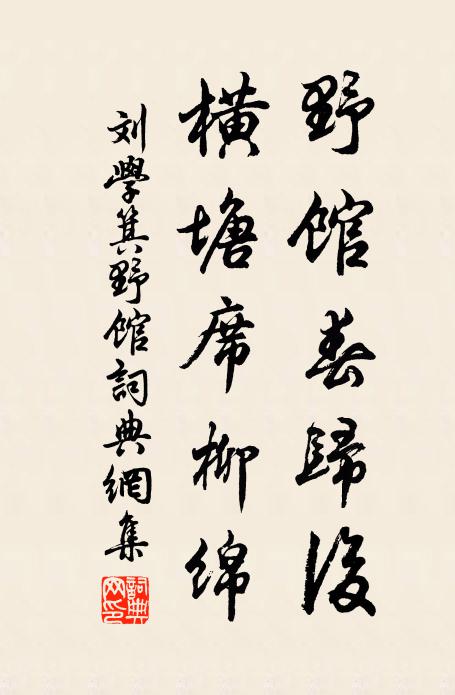 野館春歸後
橫塘席柳綿
刘學箕野館詞典網集
詞典网印